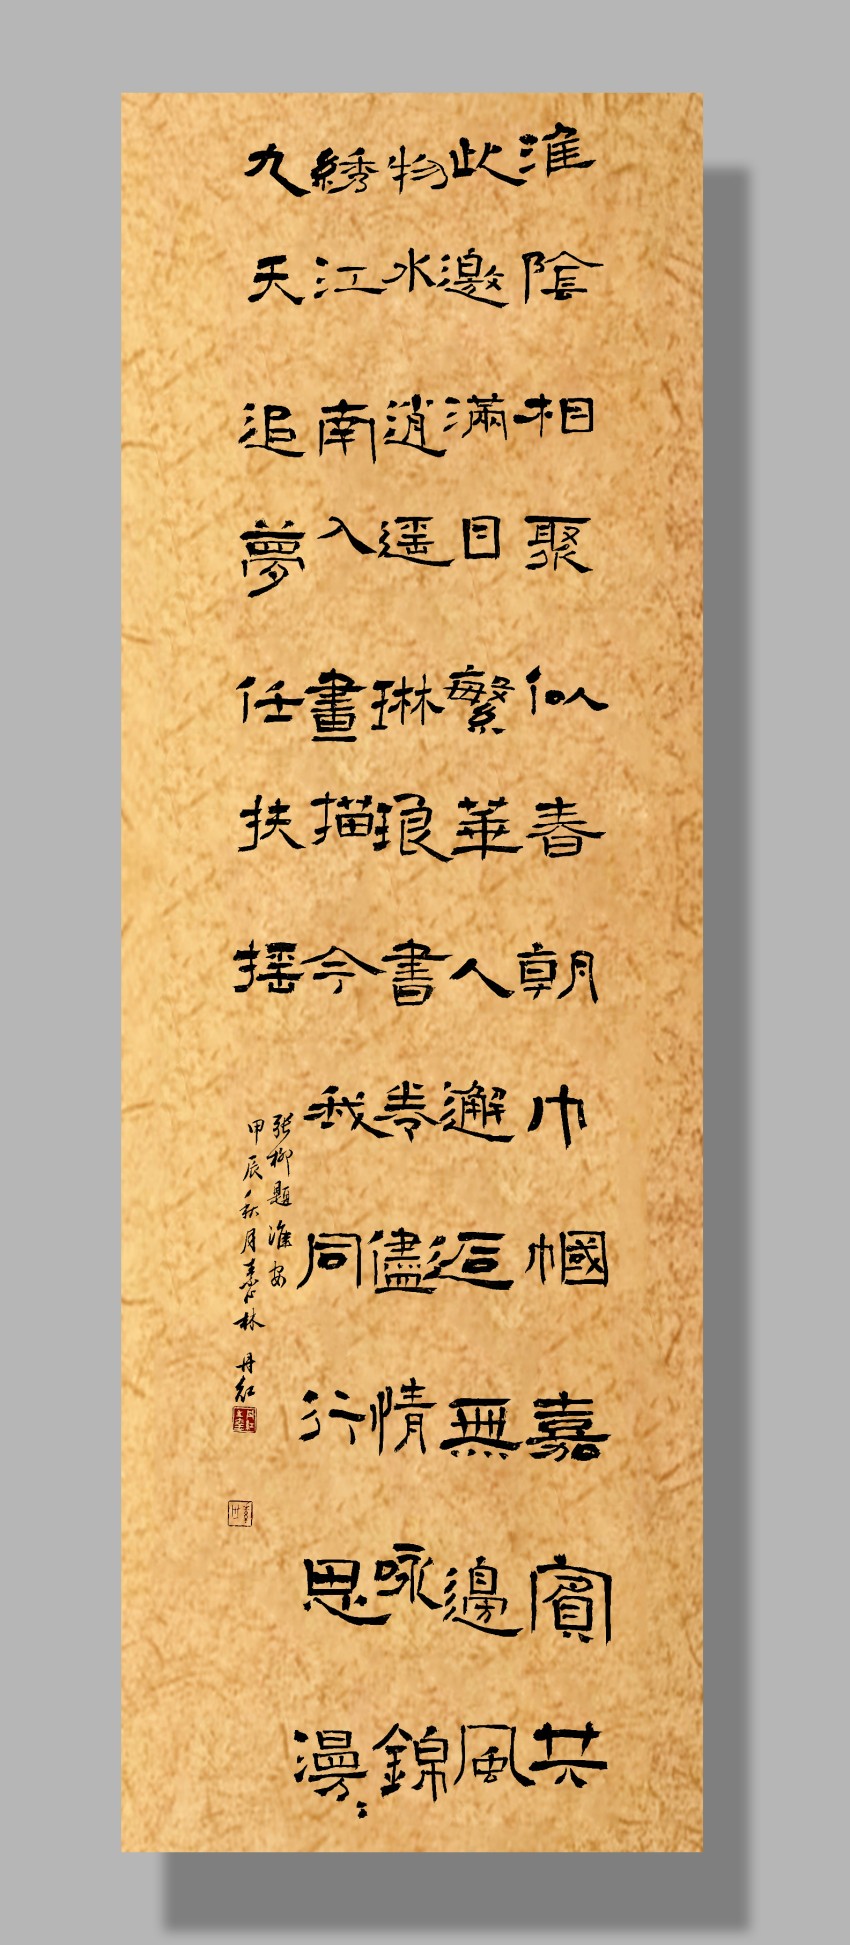 淮陰相聚似春朝巾幗嘉賓共
此邀滿目繁華人邂逅無邊風
物水逍遥琳琅書卷儘情咏錦
綉江南入畫描今我同行思漫〻
九天追夢任扶摇
张柳題淮安
甲辰秋月林丹红